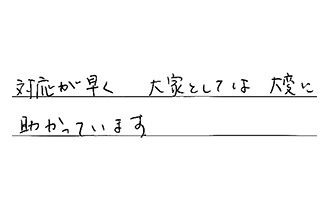 対応が早く 大家としては 大変に
助かっています